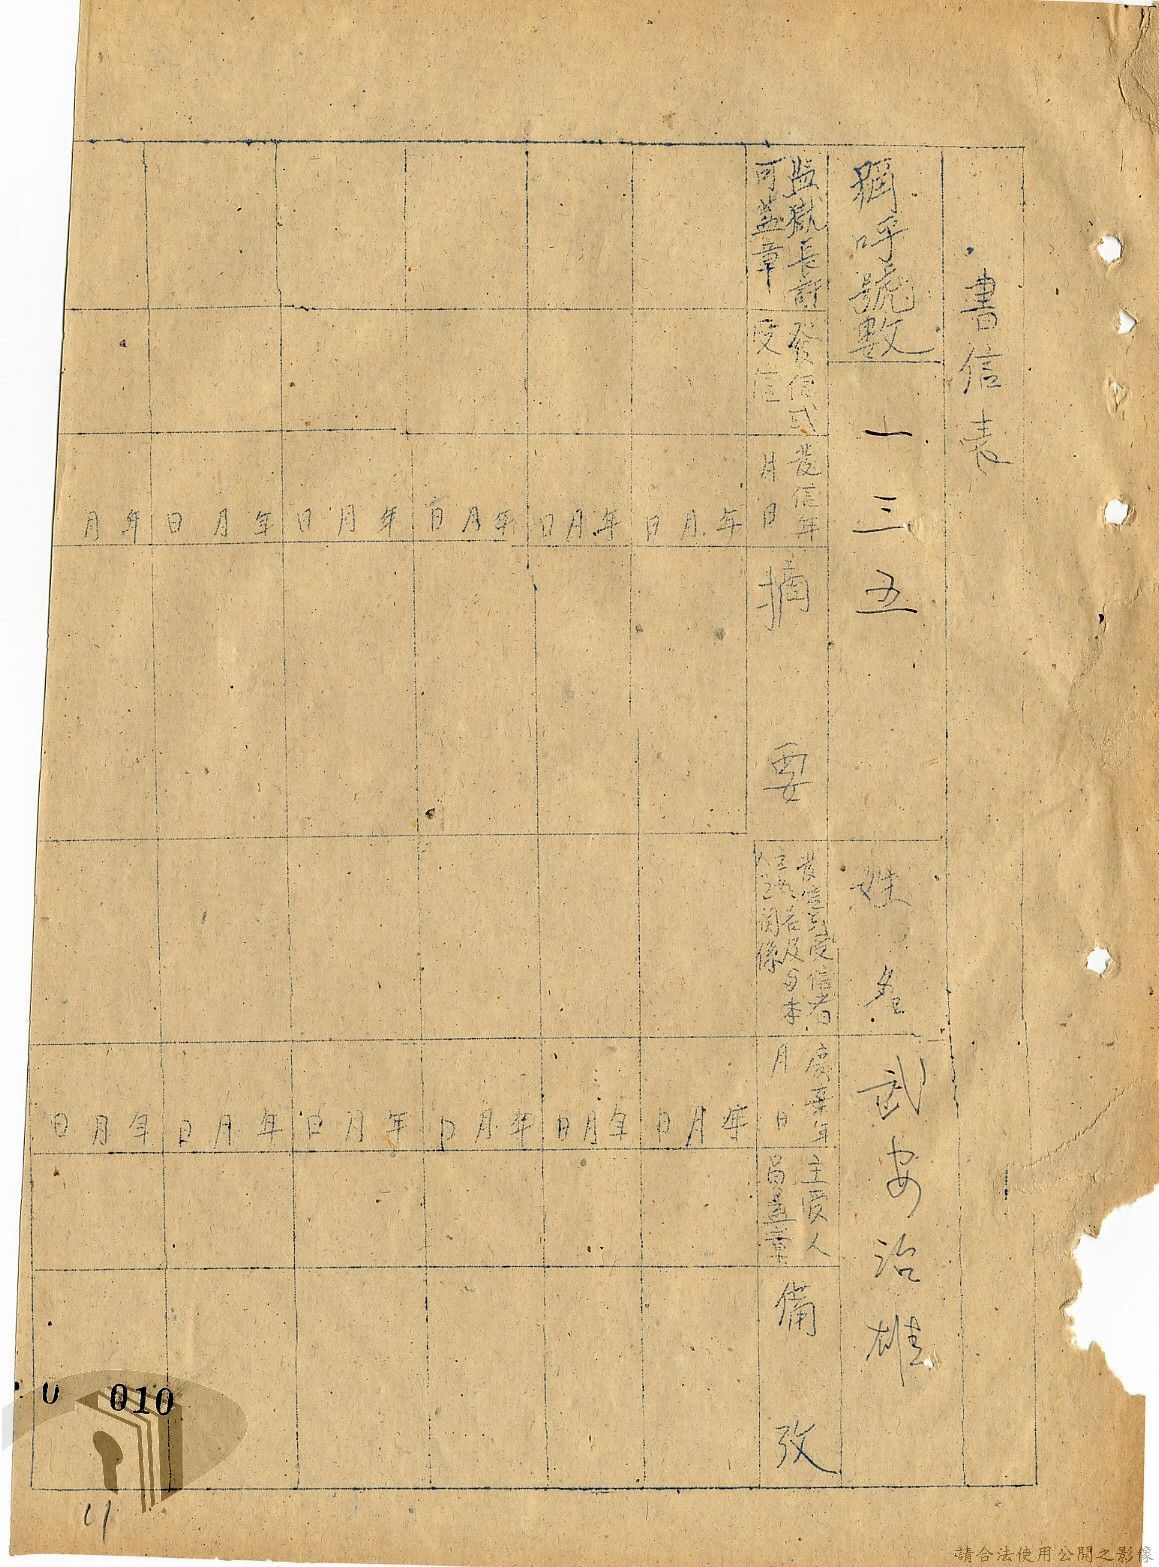 書信表
稱呼號數
一三五
姓名
武安治雄
監獄長許
可蓋章
發信或
受信
發信年
月日
摘要
發信或受信者
姓名及与本
人之關係
廢棄年
月日
主管人
員蓋章
備攷
年月日
年月日
年月日
年月日
年月日
年月
年月日
年月日
年月日
年月日
年月日
年月日
010
11
請合法使用公開之影像